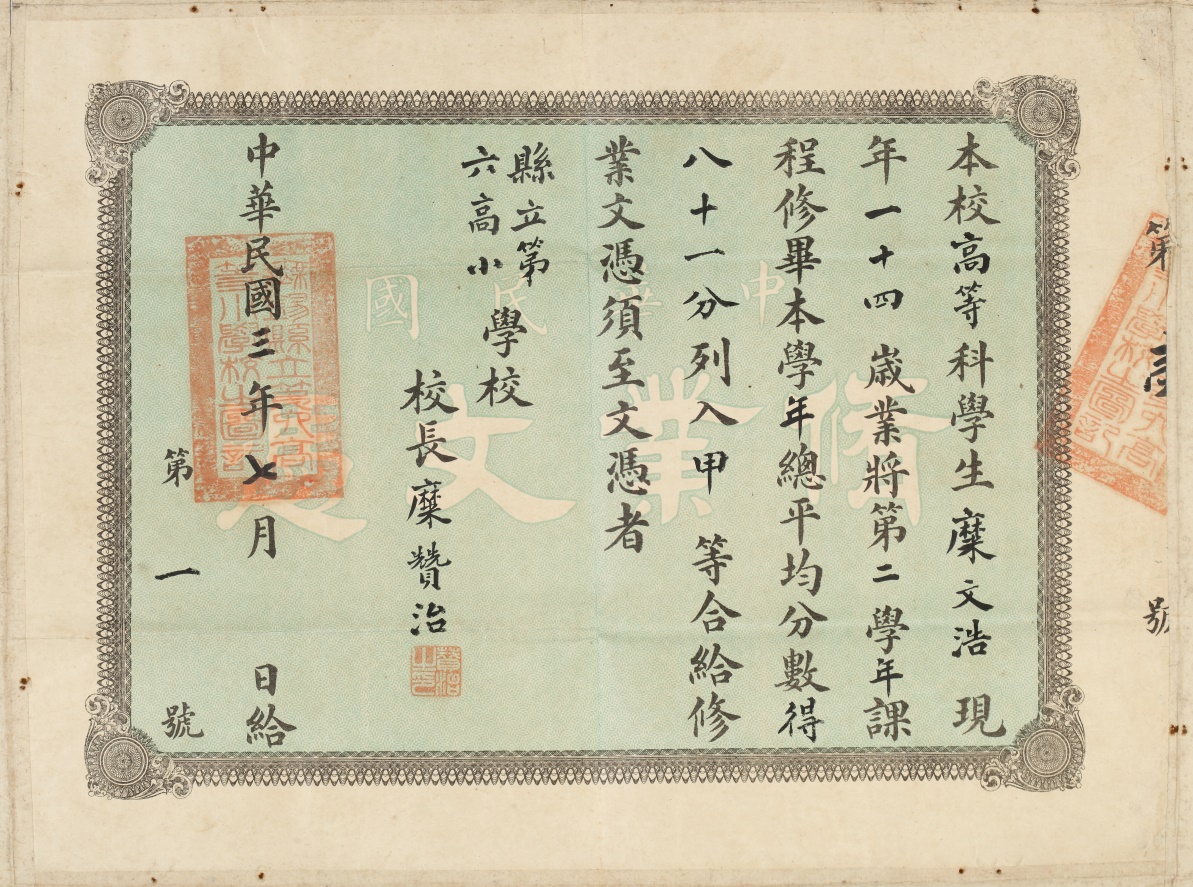 第
號
本校高等科學生糜文浩現
年一十四歲業將第二學年課
程修畢本學年總平均分數得
八十一分列入甲等合給修
業文憑須至文憑者
縣立第
六高小
學校
校長糜贊治
中華民國三年七月日給
第一號
中華民國
修業文憑